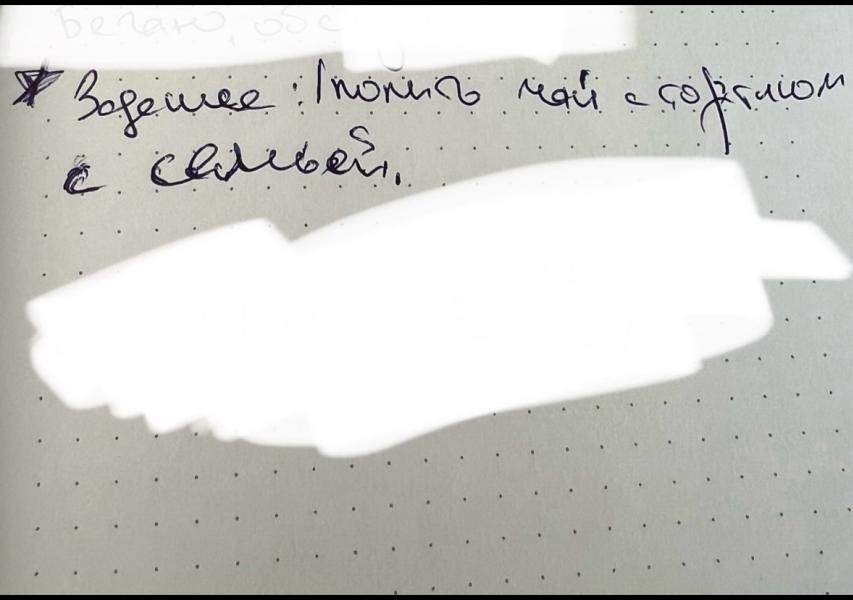 бегаю, обс
* Задание: попить чай с тортиком
с семьей.